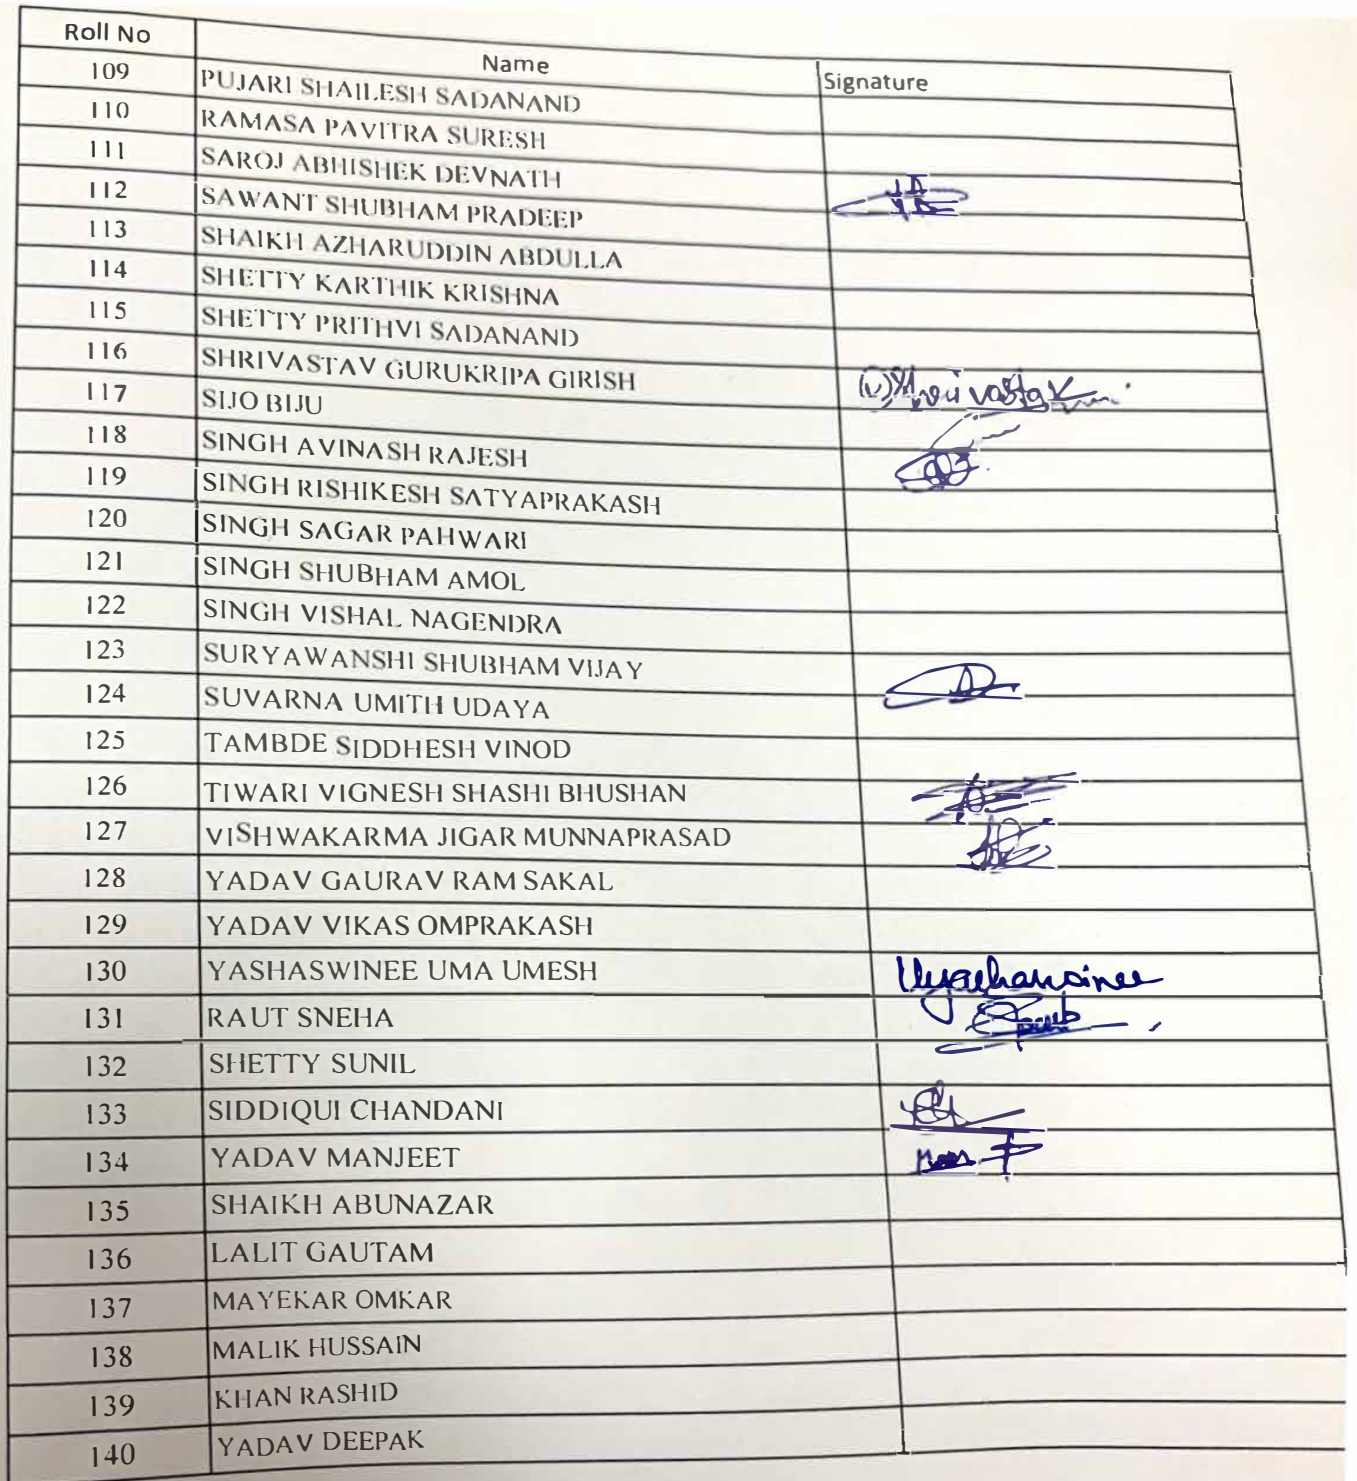 Roll No Name Signature
109 PUJARI SHAILESH SADANAND
110 RAMASA PAVITRA SURESH
111 SAROJ ABHISHEK DEVNATH
112 SAWANT SHUBHAM PRADEEP
113 SHAIKH AZHARUDDIN ABDULLA
114 SHETTY KARTHIK KRISHNA
115 SHETTY PRITHVI SADANAND
116 SHRIVASTAV GURUKRIPA GIRISH
117 SIJO BIJU
118 SINGH AVINASH RAJESH
119 SINGH RISHIKESH SATYAPRAKASH
120 SINGH SAGAR PAHWARI
121 SINGH SHUBHAM AMOL
122 SINGH VISHAL NAGENDRA
123 SURYAWANSHI SHUBHAM VIJAY
124 SUVARNA UMITH UDAYA
125 TAMBDE SIDDHESH VINOD
126 TIWARI VIGNESH SHASHI BHUSHAN
127 VISHWAKARMA JIGAR MUNNAPRASAD
128 YADAV GAURAV RAM SAKAL
129 YADAV VIKAS OMPRAKASH
130 YASHASWINEE UMA UMESH
131 RAUT SNEHA
132 SHETTY SUNIL
133 SIDDIQUI CHANDANI
134 YADAV MANJEET
135 SHAIKH ABUNAZAR
136 LALIT GAUTAM
137 MAYEKAR OMKAR
138 MALIK HUSSAIN
139 KHAN RASHID
140 YADAV DEEPAK